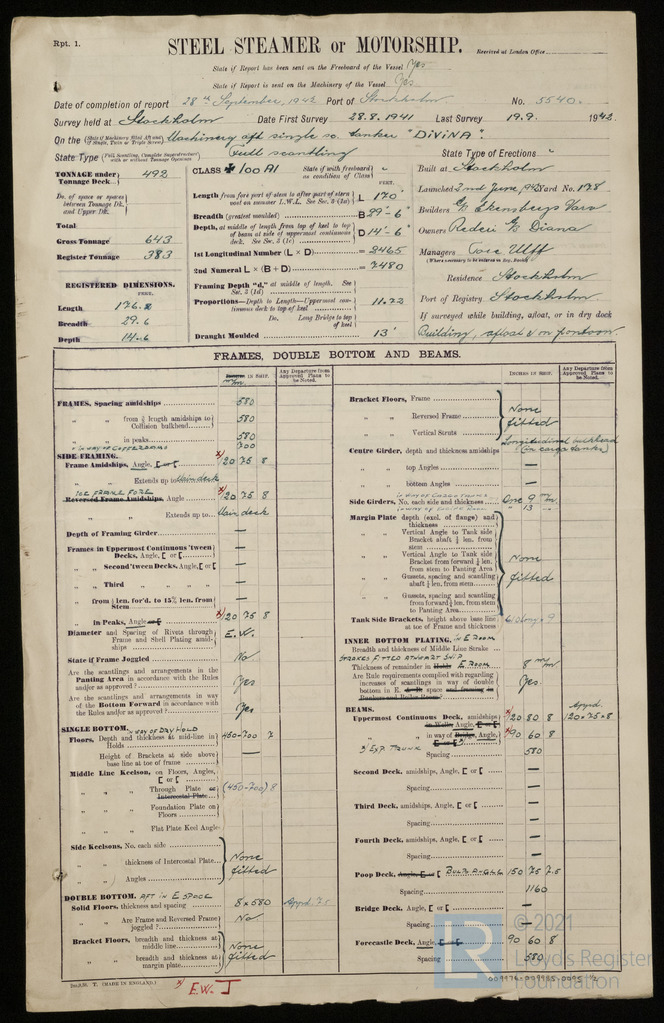 Rpt. 1.
STEEL STEAMER or MOTORSHIP.
Received at London Office
State if Report has been sent on the Freeboard of the Vessel Yes
State if Report is sent on the Machinery of the Vessel Yes
Date of completion of report 28th September, 1942 Port of Stockholm No. 5540.
Survey held at Stockholm Date First Survey 28.8.1941 Last Survey 19.9. 1942.
On the (State if Machinery fitted Aft and if Single, Twin or Triple Screw) Machinery aft single sc. tanker "DIVINA".
State Type (Full Scantling, Complete Superstructure with or without Tonnage Openings) Full scantling
State Type of Erections
TONNAGE under Tonnage Deck... 492
Do. of space or spaces between Tonnage Dk. and Upper Dk.
Total
Gross Tonnage 643
Register Tonnage 383
REGISTERED DIMENSIONS.
FEET.
Length 176.2
Breadth 29.6
Depth 14.6
CLASS 100 A1 State if with freeboard as condition of Class
FEET.
Length from fore part of stem to after part of stern post on summer L.W.L. See Sec. 3 (1a) L 170'
Breadth (greatest moulded) B 29'-6"
Depth, at middle of length from top of keel to top of beam at side of uppermost continuous deck. See Sec. 3 (1c) D 14'-6"
1st Longitudinal Number (L × D) = 2465
2nd Numeral L × (B + D) = 7480
Framing Depth "d," at middle of length. See Sec. 3 (1d)
Proportions—Depth to Length—Uppermost continuous deck to top of keel 11.72
Do. Long Bridge to top of keel
Draught Moulded 13'
Built at Stockholm
Launched 2nd June, 1942 Yard No. 178
Builders A/B Ekensbergs Varv
Owners Rederi A/B Diana
Managers Tore Ulff
(Where necessary to be entered in Reg. Book)
Residence Stockholm
Port of Registry Stockholm
If surveyed while building, afloat, or in dry dock
Building, afloat & on pontoon.
FRAMES, DOUBLE BOTTOM AND BEAMS.
INCHES IN SHIP. m/m
Any Departure from Approved Plans to be Noted.
FRAMES, Spacing amidships 580
" " from ⅗ length amidships to Collision bulkhead 580
" " in peaks 580
" in way of cofferdams 700
SIDE FRAMING.
Frame Amidships, Angle, x/ 120 75 8
" " Extends up to Main deck
ICE FRAME FORE
Reversed Frame Amidships, Angle x/ 120 75 8
" " Extends up to Main deck
Depth of Framing Girder —
Frames in Uppermost Continuous 'tween Decks, Angle, [ or [ —
" " Second 'tween Decks, Angle, [ or [ —
" " Third " " " " —
" " from ⅕ len. for'd. to 15% len. from Stem —
" " in Peaks, Angle x/ 120 75 8
Diameter and Spacing of Rivets through Frame and Shell Plating amidships E.W.
State if Frame Joggled No
Are the scantlings and arrangements in the Panting Area in accordance with the Rules and/or as approved? Yes
Are the scantlings and arrangements in way of the Bottom Forward in accordance with the Rules and/or as approved? Yes
SINGLE BOTTOM. IN WAY OF DRY HOLD
Floors, Depth and thickness at mid-line in Holds 450-700 7
Height of Brackets at side above base line at toe of frame —
Middle Line Keelson, on Floors, Angles, [ or [
" " " Through Plate or Intercostal Plate (450-700) 8
" " " Foundation Plate on Floors
" " " Flat Plate Keel Angle
Side Keelsons, No. each side
" " thickness of Intercostal Plate
" " Angles
None fitted
DOUBLE BOTTOM. AFT IN E SPACE
Solid Floors, thickness and spacing 8 x 580 Appd. 7.5
" " Are Frame and Reversed Frame joggled? No.
Bracket Floors, breadth and thickness at middle line
" " breadth and thickness at margin plate
None fitted
INCHES IN SHIP.
Any Departure from Approved Plans to be Noted.
Bracket Floors, Frame
" " Reversed Frame
" " Vertical Struts
None fitted
Centre Girder, depth and thickness amidships Longitudinal bulkhead (in cargo tanks)
" " top Angles —
" " bottom Angles —
Side Girders, No. each side and thickness One 9 m/m
" 13 "
Margin Plate depth (excl. of flange) and thickness
" " Vertical Angle to Tank side Bracket abaft ⅕ len. from stem
" " Vertical Angle to Tank side Bracket from forward ⅕ len. from stem to Panting Area
" " Gussets, spacing and scantling abaft ⅕ len. from stem
" " Gussets, spacing and scantling from forward ⅕ len. from stem to Panting Area
None fitted
Tank Side Brackets, height above base line at toe of Frame and thickness
INNER BOTTOM PLATING. IN E ROOM
Breadth and thickness of Middle Line Strake
STRAKES FITTED ATHWART SHIP
Thickness of remainder in Holds E ROOM 8 m/m
Are Rule requirements complied with regarding increases of scantlings in way of double bottom in E. & B space and framing in Bunkers and Boiler Room? Yes.
BEAMS.
Uppermost Continuous Deck, amidships x/ 120 80 8 Appd. 120 x 75 x 8
" " in way of Bridge, Angle, x/ 90 60 8
Spacing 580
Second Deck, amidships, Angle, [ or [ —
Spacing —
Third Deck, amidships, Angle, [ or [ —
Spacing —
Fourth Deck, amidships, Angle, [ or [ —
Spacing —
Poop Deck, Angle, [ or [ BULB ANGLE 150 75 7.5
Spacing 1160
Bridge Deck, Angle, [ or [ —
Spacing —
Forecastle Deck, Angle, [ or [ 90 60 8
Spacing 580
(MADE IN ENGLAND.)
x/ E.W. J
© 2021
Lloyd's Register
Foundation
LR